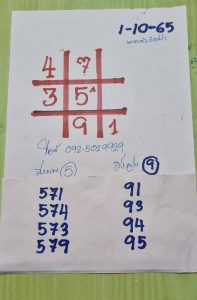 1-10-65
4 7
3 5
9 1
092-5029929
5 9
571 91
574 93
573 94
579 95